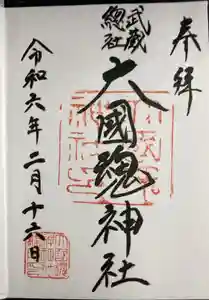 奉拝
武蔵
總社
大國魂神社
令和六年二月十六日